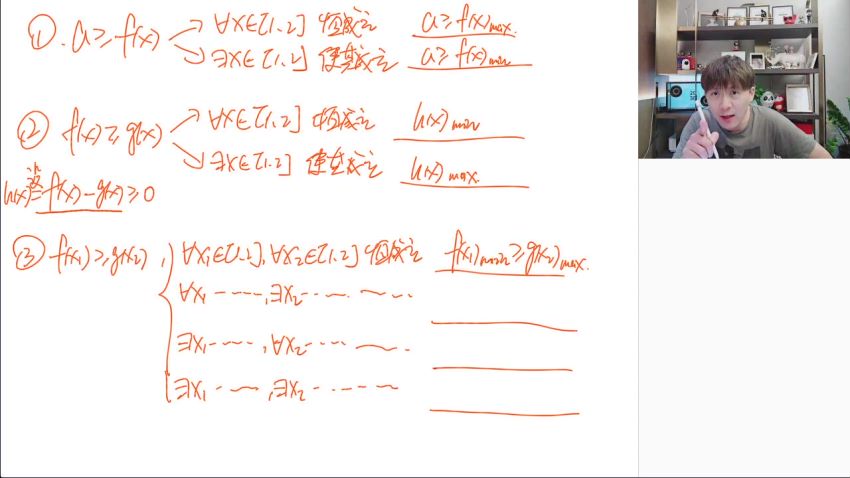 ① a≥f(x) ∀x∈[1,2] 恒成立 a≥f(x)max.
∃x∈[1,2] 使其成立 a≥f(x)min
② f(x)≥g(x) ∀x∈[1,2] 恒成立 h(x)min
∃x∈[1,2] 使其成立 h(x)max.
h(x)设=f(x)-g(x)≥0
③ f(x₁)≥g(x₂), ∀x₁∈[1,2],∀x₂∈[1,2] 恒成立 f(x₁)min≥g(x₂)max.
∀x₁-----,∃x₂-----
∃x₁-----,∀x₂-----
∃x₁-----,∃x₂-----